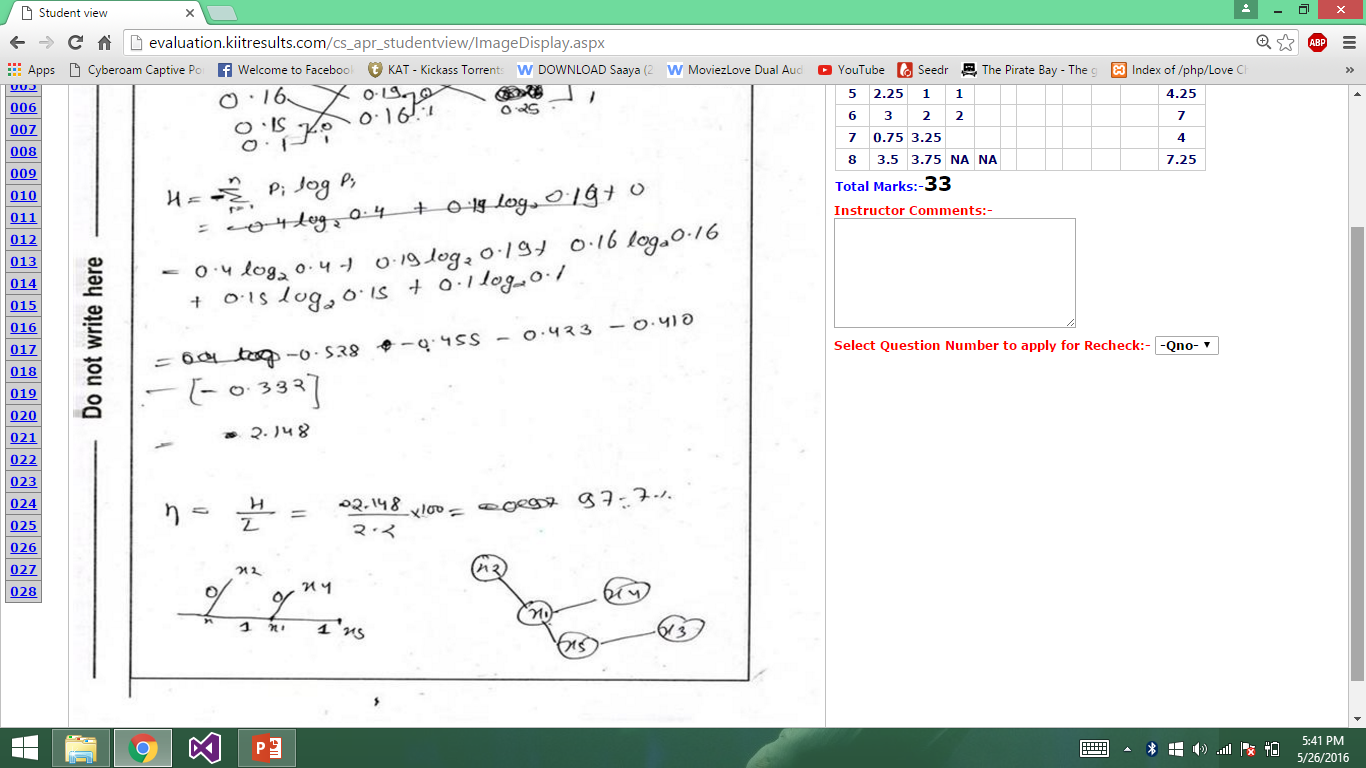 Student view
evaluation.kiitresults.com/cs_apr_studentview/ImageDisplay.aspx
ABP
Apps Cyberoam Captive Po Welcome to Facebook KAT - Kickass Torrents DOWNLOAD Saaya (2 MoviezLove Dual Aud YouTube Seedr The Pirate Bay - The g Index of /php/Love Ch »
005
006
007
008
009
010
011
012
013
014
015
016
017
018
019
020
021
022
023
024
025
026
027
028
Do not write here
0.16 0.19 0 1
0.15 0 0.16 1 0.25
0.1 1
H = -Σ Pi log Pi
= -0.4 log₂ 0.4 + 0.19 log₂ 0.19 + 0
= 0.4 log₂ 0.4 + 0.19 log₂ 0.19 + 0.16 log₂ 0.16
+ 0.15 log₂ 0.15 + 0.1 log₂ 0.1
= -0.528 -0.455 - 0.423 - 0.410
- [- 0.332]
= 2.148
η = H/L = 2.148/2.2 ×100 = 97.7%
0 x2 0 x4
1 x1 1 x5
x2
x4
x1
x3
x5
5 2.25 1 1 4.25
6 3 2 2 7
7 0.75 3.25 4
8 3.5 3.75 NA NA 7.25
Total Marks:-33
Instructor Comments:-
Select Question Number to apply for Recheck:- -Qno-
5:41 PM
5/26/2016